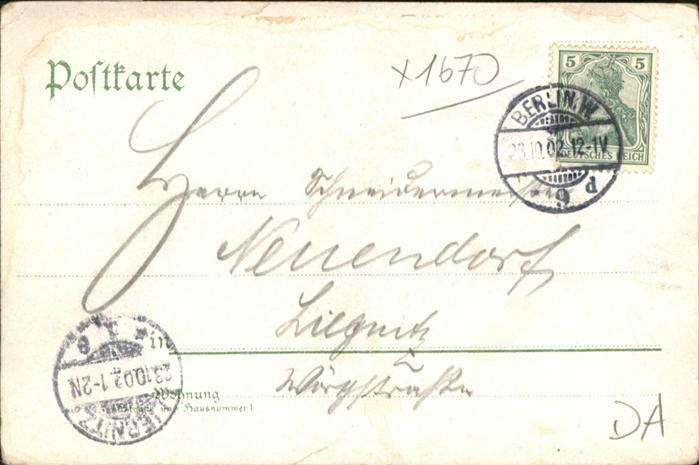 Postkarte
x1670
5 5
DEUTSCHES REICH
BERLIN.W.
23.10.02.12-1V
9 d
Herrn Schneidermeister
Neuendorf
in Liegnitz
23.10.02.1-2N
Wohnung
(Straße und Hausnummer)
DA